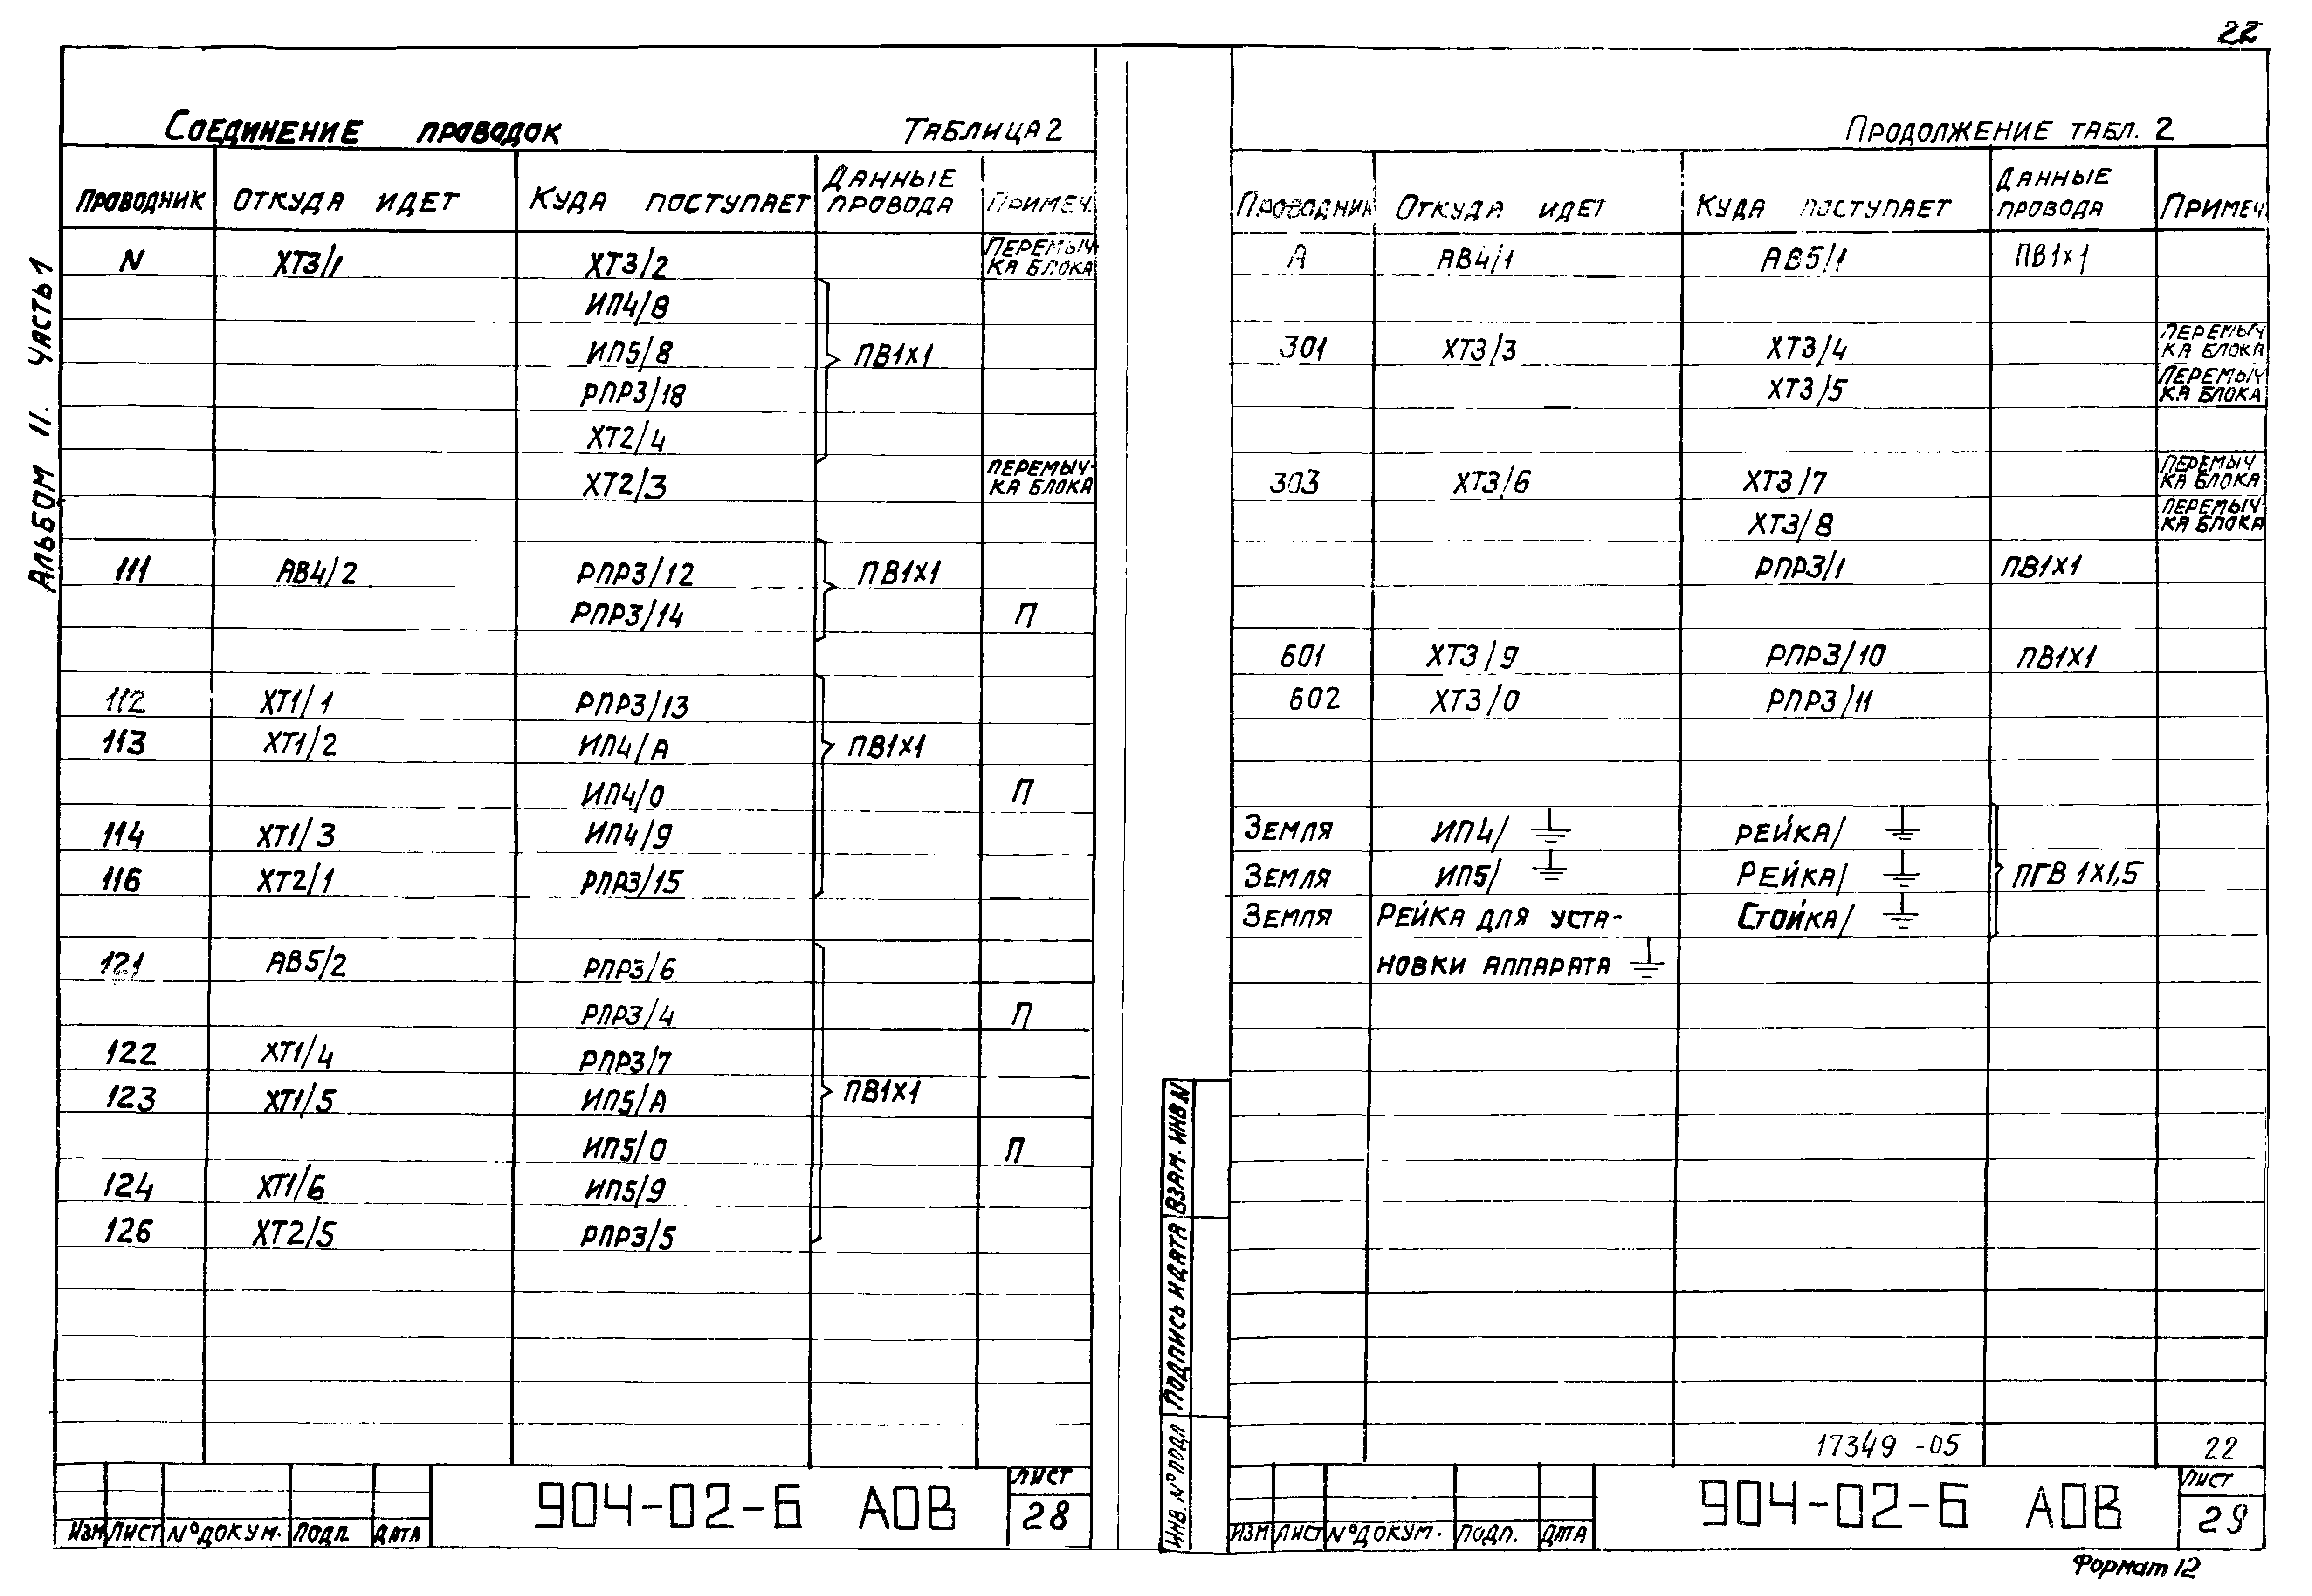 22
Альбом II. Часть 1
Соединение проводок Таблица 2
Проводник Откуда идет Куда поступает Данные провода Примеч.
N ХТ3/1 ХТ3/2 Перемыч-
ка блока
ИП4/8
ИП5/8 ПВ1х1
РПР3/18
ХТ2/4
ХТ2/3 Перемыч-
ка блока
111 АВ4/2 РПР3/12 ПВ1х1
РПР3/14 П
112 ХТ1/1 РПР3/13
113 ХТ1/2 ИП4/А ПВ1х1
ИП4/0 П
114 ХТ1/3 ИП4/9
116 ХТ2/1 РПР3/15
121 АВ5/2 РПР3/6
РПР3/4 П
122 ХТ1/4 РПР3/7
123 ХТ1/5 ИП5/А ПВ1х1
ИП5/0 П
124 ХТ1/6 ИП5/9
126 ХТ2/5 РПР3/5
Изм Лист №докум. Подп. Дата
904-02-6 АОВ
Лист
28
Продолжение табл. 2
Проводник Откуда идет Куда поступает Данные провода Примеч
А АВ4/1 АВ5/1 ПВ1х1
301 ХТ3/3 ХТ3/4 Перемыч
ка блока
ХТ3/5 Перемыч
ка блока
303 ХТ3/6 ХТ3/7 Перемыч
ка блока
ХТ3/8 Перемыч-
ка блока
РПР3/1 ПВ1х1
601 ХТ3/9 РПР3/10 ПВ1х1
602 ХТ3/0 РПР3/11
Земля ИП4/ рейка/
Земля ИП5/ Рейка/ ПГВ 1х1,5
Земля Рейка для уста- Стойка/
новки аппарата
17349-05 22
Инв. №подл Подпись и дата Взам. инв.N
Изм Лист №докум. Подп. Дата
904-02-6 АОВ
Лист
29
Формат 12